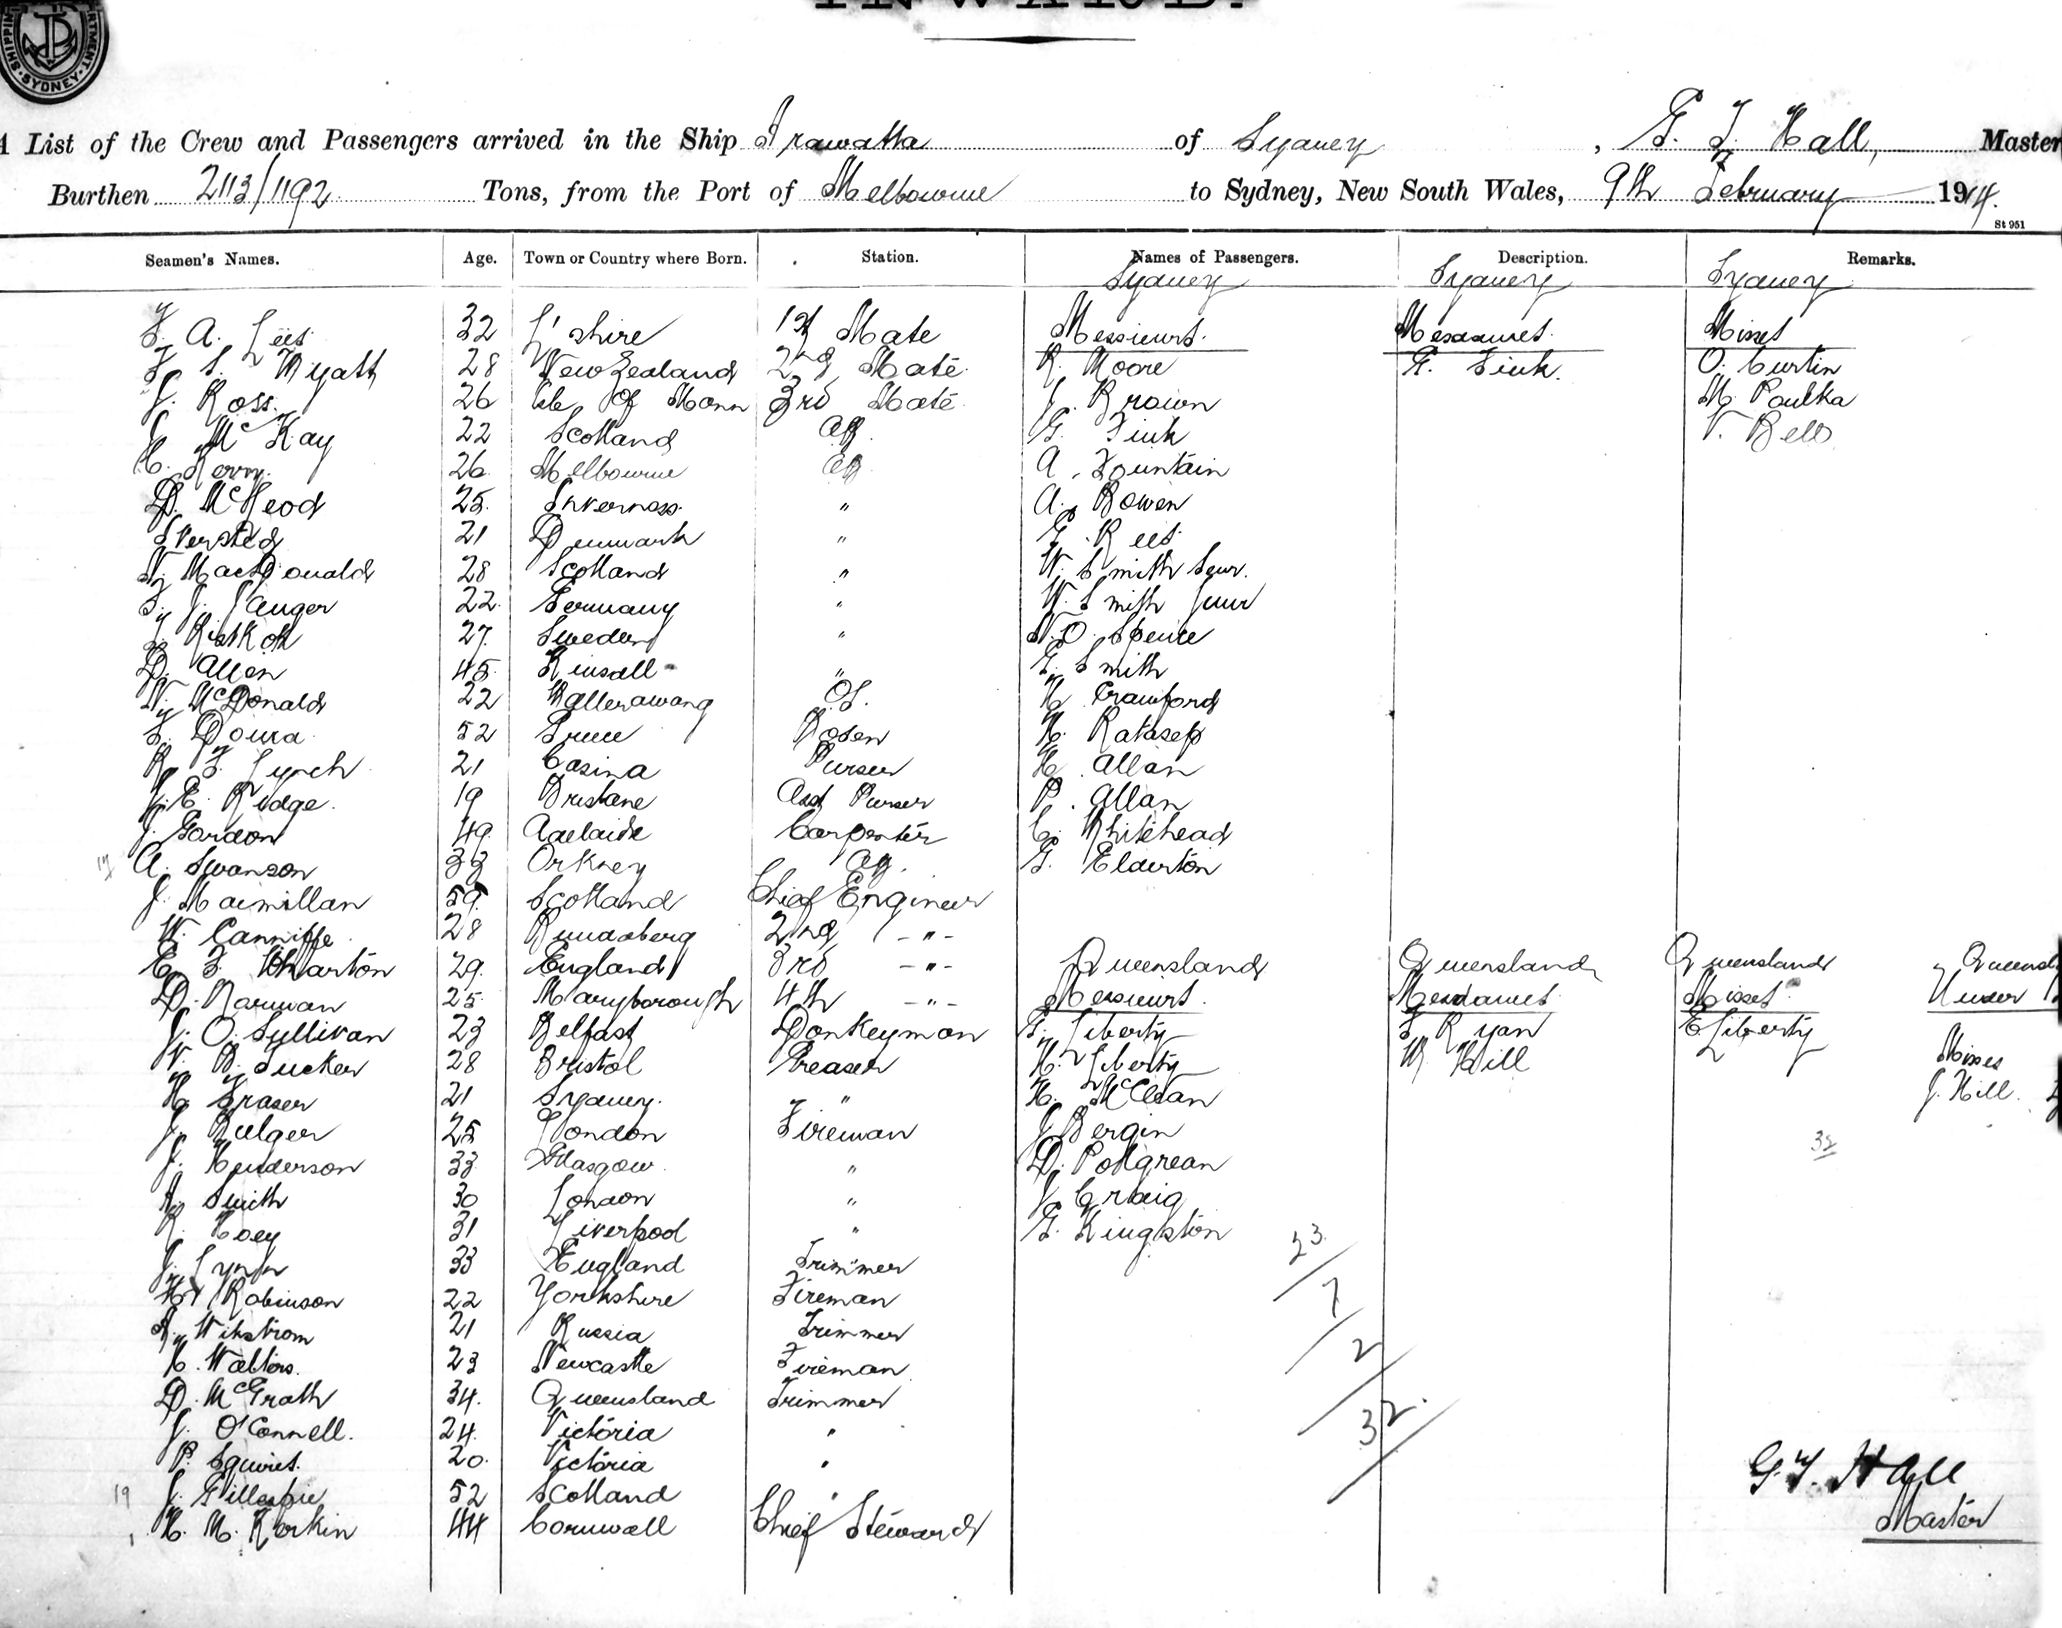 INWARD.
SHIPPING DEPARTMENT. SYDNEY.
A List of the Crew and Passengers arrived in the Ship Irawatta of Sydney, G. F. Hall, Master
Burthen 2113/1192 Tons, from the Port of Melbourne to Sydney, New South Wales, 9th February 1914.
St 951
Seamen's Names. Age. Town or Country where Born. Station. Names of Passengers. Description. Remarks.
Sydney Sydney Sydney
F. A. Lees 32 L'shire 1st Mate Messieurs. Mesdames. Misses
F. S. Wyatt 28 New Zealand 2nd Mate. R. Moore G. Fink. O. Curtin
J. Ross. 26 Isle of Mann 3rd Mate. J. Brown M. Paulka
J. McKay 22 Scotland AB. G. Fink V. Bell
C. 26 Melbourne AB A. Fountain
D. McLeod 25. Inverness. " A. Bowen
Iversted 21 Denmark " G. Rees.
N. MacDonald 28 Scotland " W. Smith Senr.
F. J. Langer 22. Germany " W. Smith Junr
27. Sweden " N. O. Spence
D. Allen 45. Kinsall " G. Smith
N. McDonald 22 Wallerawang O.S. H. Crawford
52 Bosen H.
R. F. Lynch 21 Casina Purser H. Allan
J. E. Ridge. 19 Brisbane Asst Purser P. Allan
J. Gordon 49. Adelaide Carpenter C. Whitehead
17 A. Swanson 33 Orkney AB. G. Elderton
J. Macmillan 59. Scotland Chief Engineer
W. Canniffe 28 Bundaberg 2nd -"-
E. F. Wharton 29. England 3rd -"- Queensland Queensland Queensland Queensl
D. Narwan 25. Maryborough 4th -"- Messieurs. Mesdames. Misses Under 12
J. O. Sullivan 23 Belfast Donkeyman G. Liberty F. Ryan E Liberty
V. B. Tucker 28 Bristol Greaser H. Liberty W. Hill Misses
H. Fraser 21 Sydney. " H. McClean J. Hill.
J. Bulger 25 London Fireman J. Bergin
J. Henderson 33 Glasgow. " D. Pollgrean 32
A. Smith 30 London " J. Craig
R. Hoey 31 Liverpool " G. Kingston
J. Lynn 33 England Trimmer 23
H. Robinson 22 Yorkshire Fireman 7
A. Wikstrom 21 Russia Trimmer
H. Walters. 23 Newcastle Fireman 2
D. McGrath 34. Queensland Trimmer
J. O'Connell. 24. Victoria " 32.
P. Squires. 20. Victoria "
19 J. Gillespie 52 Scotland " G. F. Hall
1 H. M. Korkin 44 Cornwall Chief Steward Master